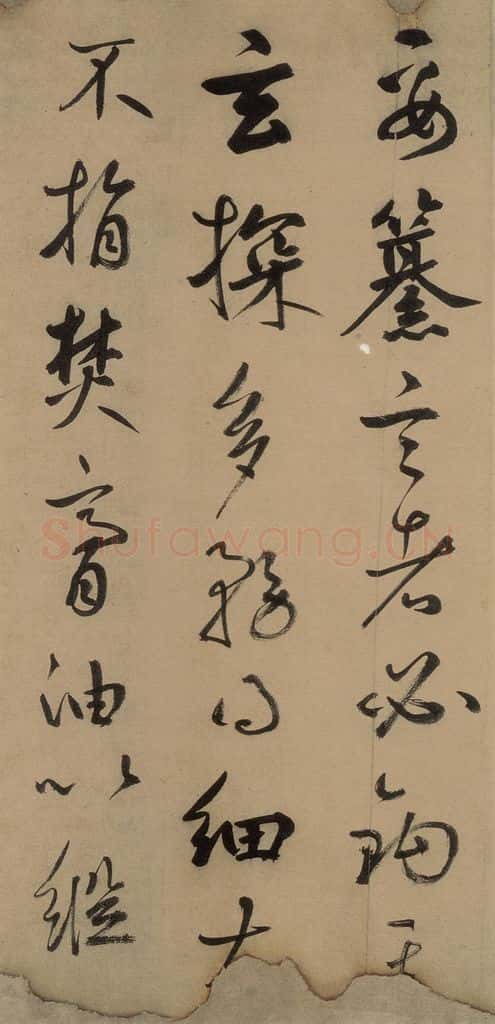 要纂言者必鉤其
玄探多務得細大
不捐焚膏油以繼
Shufawang.CN